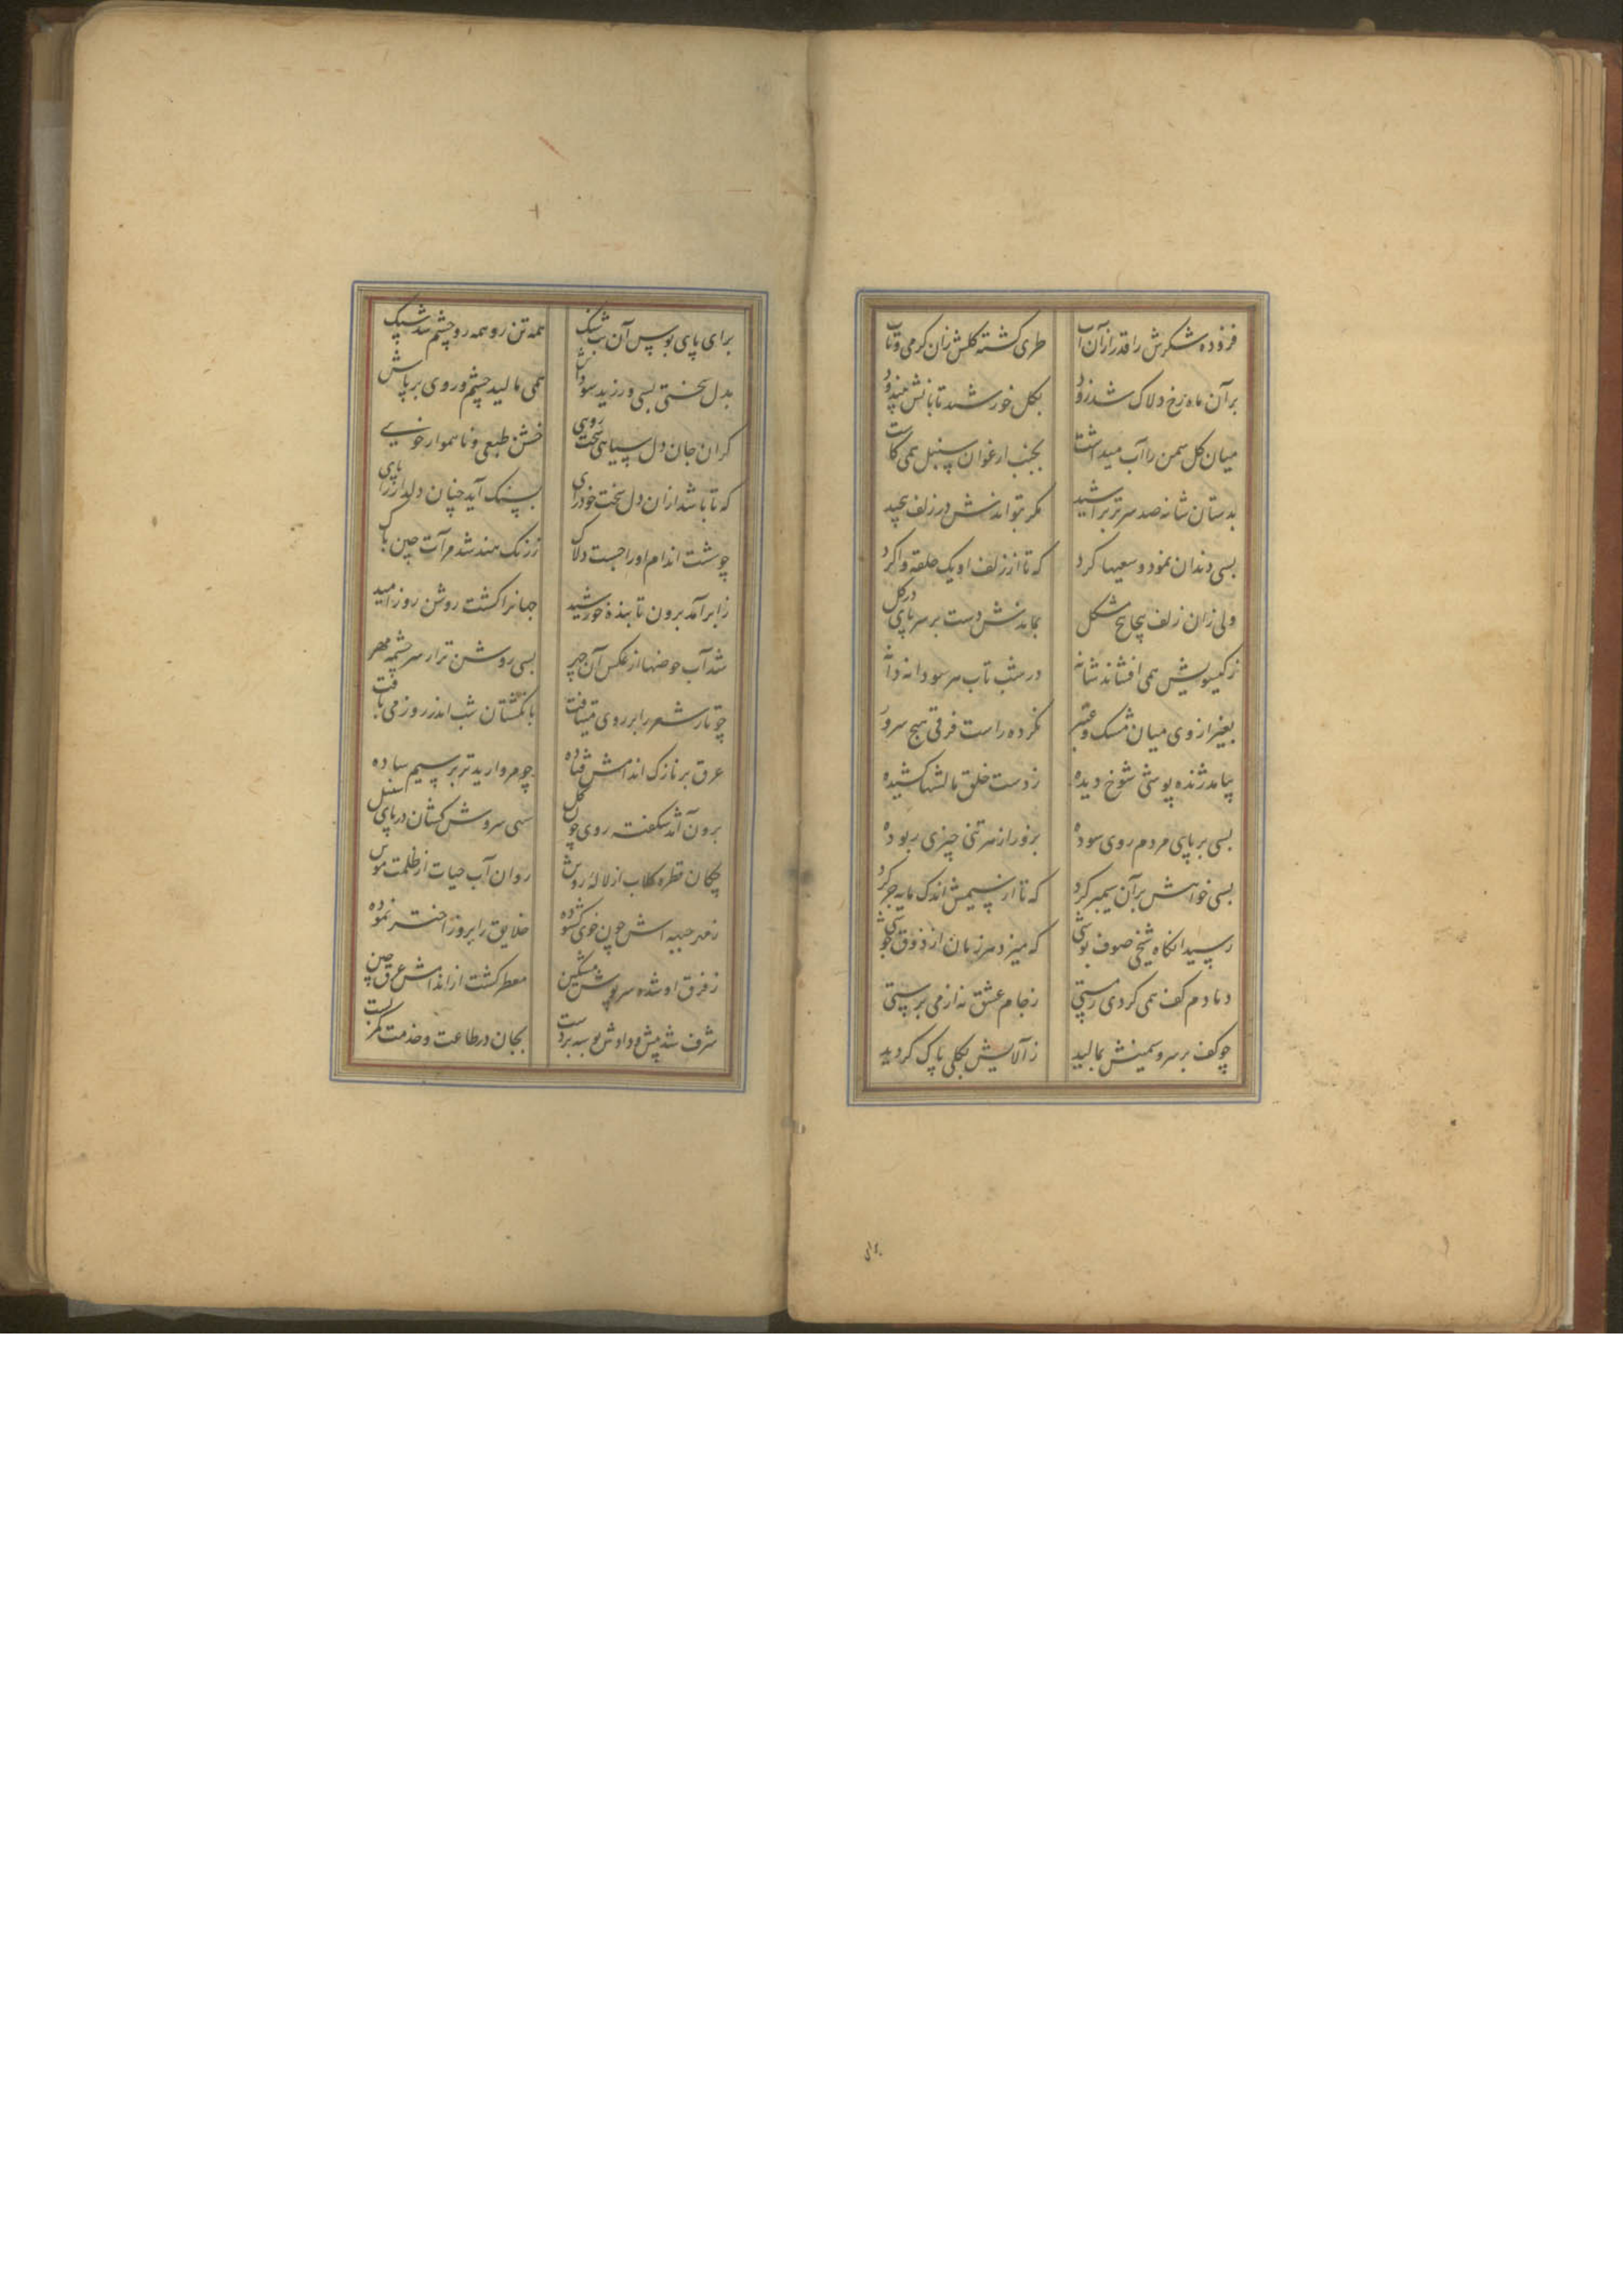 فزوده شکرش را قدر ازان آب طری کشته کلش زان کرمی و تاب
بر آن ماه رخ دلاک شد زود بکل خورشید تابانش
میان کل سمن را آب میداشت بجنب ارغوان سنبل همی کاشت
بدستان شانه صد سر تراشید مکر بتواندش در زلف پیچید
بسی دندان نمود و سعیها کرد که تا از زلف او یک حلقه وا کرد
ولی زان زلف پیچاپیچ مشکل بماندش دست بر سر پای در کل
ز کیسویش همی افشاند شانه در شب تاب سر سودا
بغیر از وی میان مشک و عنبر نکرده راست فرقی هیچ سرور
بیامد ژنده پوشی شوخ دیده ز دست خلق مالشها کشیده
بسی بر پای مردم روی سوده بزور از هر تنی چیزی ربوده
بسی خواهش بر آن سیمبر کرد که تا از سیمش اندک مایه جر کرد
رسید آنکاه شیخی صوف پوشی که میزد هر زمان از ذوق جوشی
دمادم کف همی کردی ز مستی ز جام عشق نه از می پرستی
چو کف بر سرو سیمینش بمالید ز آلایش بکلی پاک کردید
برای پای بوس آن همه تن رو همه رو چشم شد
بدل سختی بسی ورزید سوداش همی مالید چشم و روی بر پاش
کران جان دل سیاهی سخت رویی خشن طبعی و ناهموار خویی
که تا باشد ازان دل سخت خودرای بسنک آید چنان دلدار را پای
چو شست اندام او را جست دلاک ز زنک هند شد مرآت چین پاک
ز ابر آمد برون تابنده خورشید جهانرا کشت روشن روز امید
شد آب حوضها از عکس آن چهر بسی روشن تر از سرچشمه مهر
چو تار شعر را بر روی میتافت بانکشتان شب اندر روز می بافت
عرق بر نازک اندامش فتاده چو مروارید تر بر سیم ساده
برون آمد شکفته روی چون کل سهی سروش کشان در پای سنبل
چکان قطره کلاب از لاله روش روان آب حیات از ظلمت موش
ز مهر جبهه اش چون خوی کشوده خلایق را بروز اختر نموده
ز فرق او شده سرپوش مشکین معطر کشت از اندامش عرق چین
شرف شد پیش و دادش بوسه بر دست بجان در طاعت و خدمت کمر بست